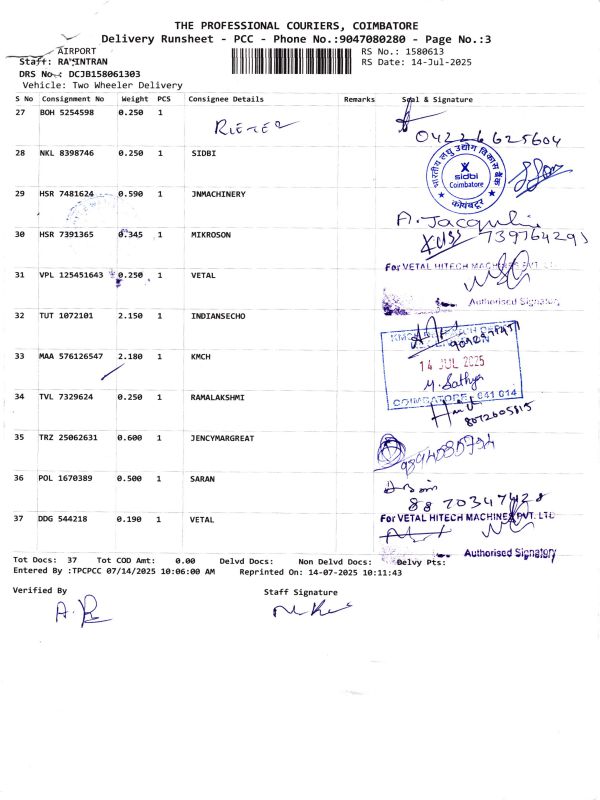 THE PROFESSIONAL COURIERS, COIMBATORE
Delivery Runsheet - PCC - Phone No.:9047080280 - Page No.:3
AIRPORT
RS No.: 1580613
Staff: RAVINTRAN
RS Date: 14-Jul-2025
DRS No.: DCJB158061303
Vehicle: Two Wheeler Delivery
S No Consignment No Weight PCS Consignee Details Remarks Seal & Signature
27 BOH 5254598 0.250 1
RIETER
04226625604
28 NKL 8398746 0.250 1 SIDBI
भारतीय लघु उद्योग विकास बैंक
sidbi
Coimbatore
कोयंबटूर
29 HSR 7481624 0.590 1 JNMACHINERY
A. Jacquline
30 HSR 7391365 0.345 1 MIKROSON
739764293
31 VPL 125451643 0.250 1 VETAL
For VETAL HITECH MACHINES PVT. LTD
Authorised Signatory
32 TUT 1072101 2.150 1 INDIANSECHO
33 MAA 576126547 2.180 1 KMCH
14 JUL 2025
M. Sathya
COIMBATORE - 641 014
34 TVL 7329624 0.250 1 RAMALAKSHMI
8072605815
35 TRZ 25062631 0.600 1 JENCYMARGREAT
36 POL 1670389 0.500 1 SARAN
8870347428
37 DDG 544218 0.190 1 VETAL
For VETAL HITECH MACHINES PVT. LTD
Authorised Signatory
Tot Docs: 37 Tot COD Amt: 0.00 Delvd Docs: Non Delvd Docs: Delvy Pts:
Entered By :TPCPCC 07/14/2025 10:06:00 AM Reprinted On: 14-07-2025 10:11:43
Verified By Staff Signature